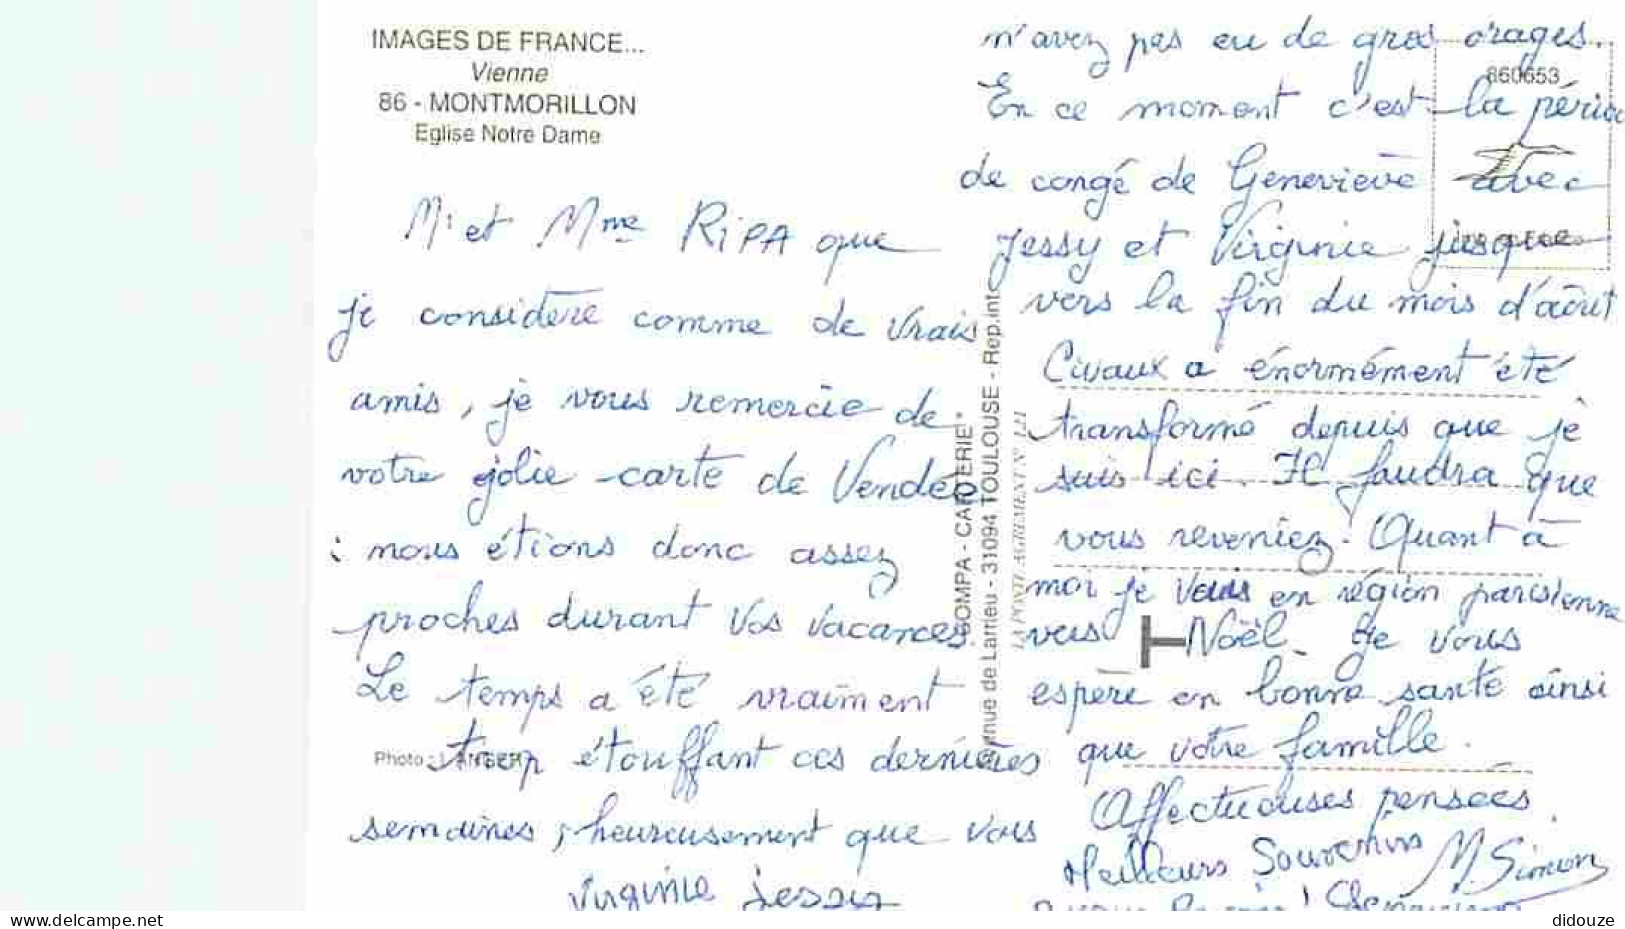 IMAGES DE FRANCE...
Vienne
86 - MONTMORILLON
Eglise Notre Dame
Mr et Mme RIPA que
je considère comme de vrais
amis, je vous remercie de
votre jolie carte de Vendée
: nous étions donc assez
proches durant vos vacances.
Le temps a été vraiment
trop étouffant ces dernières
semaines, heureusement que vous
Virginie Jessy
Photo :
"SOMPA - CARTERIE"
nue de Larrieu - 31094 TOULOUSE - Rep.int
LA POSTE AGREMENT N°
860653
n'avez pas eu de gros orages.
En ce moment c'est la périod
de congé de Geneviève avec
Jessy et Virginie jusque
vers la fin du mois d'août
Civaux a énormément été
transformé depuis que je
suis ici. Il faudra que
vous reveniez. Quant à
moi je vais en région parisienne
vers Noël. Je vous
espère en bonne santé ainsi
que votre famille.
Affectueuses pensées
Meilleurs Souvenirs M Simon
www.delcampe.net
didouze